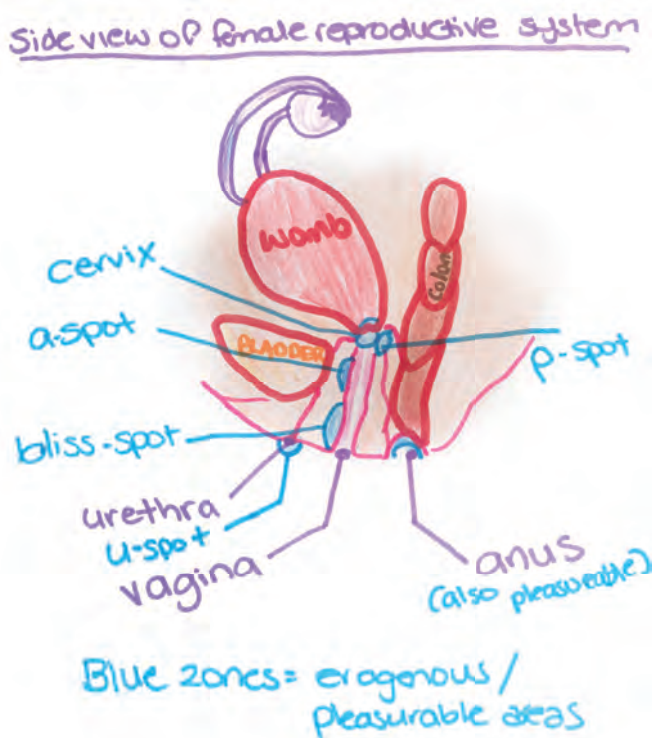 Side view of female reproductive system
womb
colon
cervix
a-spot
BLADDER
p-spot
bliss-spot
urethra
u-spot
vagina
anus
(also pleasureable)
Blue zones = erogenous /
pleasurable areas